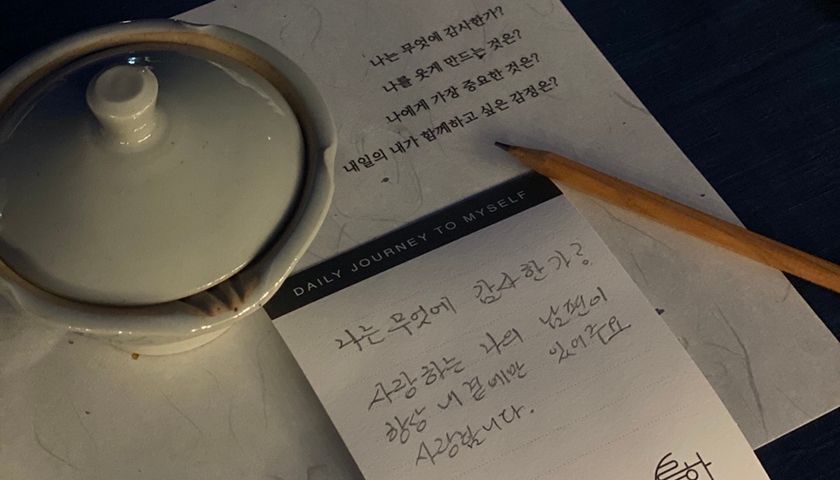 나는 무엇에 감사한가?
나를 웃게 만드는 것은?
나에게 가장 중요한 것은?
내일의 내가 함께하고 싶은 감정은?
DAILY JOURNEY TO MYSELF
나는 무엇에 감사한가?
사랑하는 나의 남편이
항상 내 곁에만 있어주요
사랑합니다.